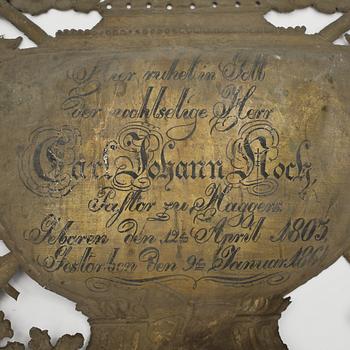 Hier ruhet in Gott
der wohlselige Herr
Carl Johann Koch,
Pastor zu Haggers
Geboren den 12ten April 1805
Gestorben den 9ten Januar